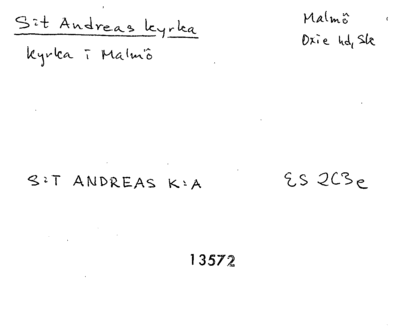 S:t Andreas kyrka
Malmö
Oxie hd, Sk
kyrka i Malmö
S:T ANDREAS K:A
ES 2C3e
13572